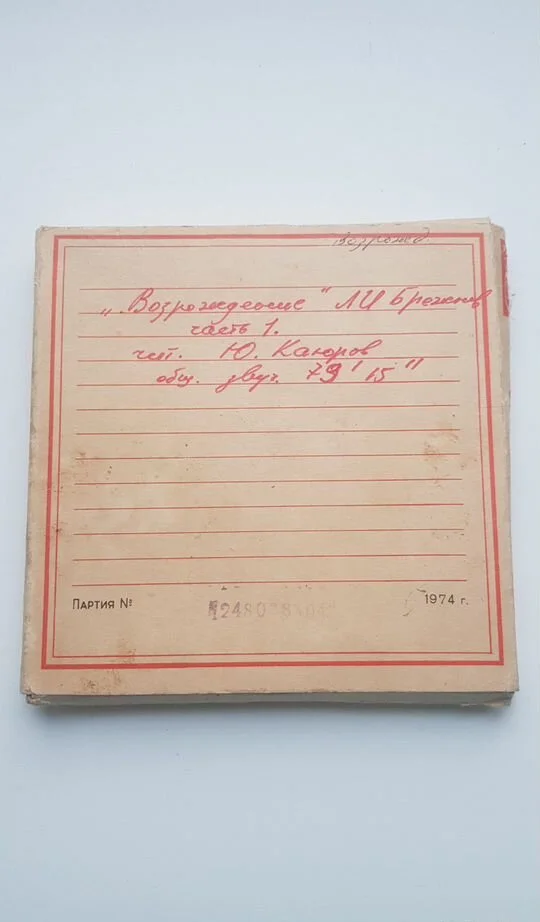 Возрожд.
„Возрождение" ЛИ Брежнев
часть 1.
чит. Ю. Каюров
общ. звуч. 79' 15"
Партия №
1974 г.